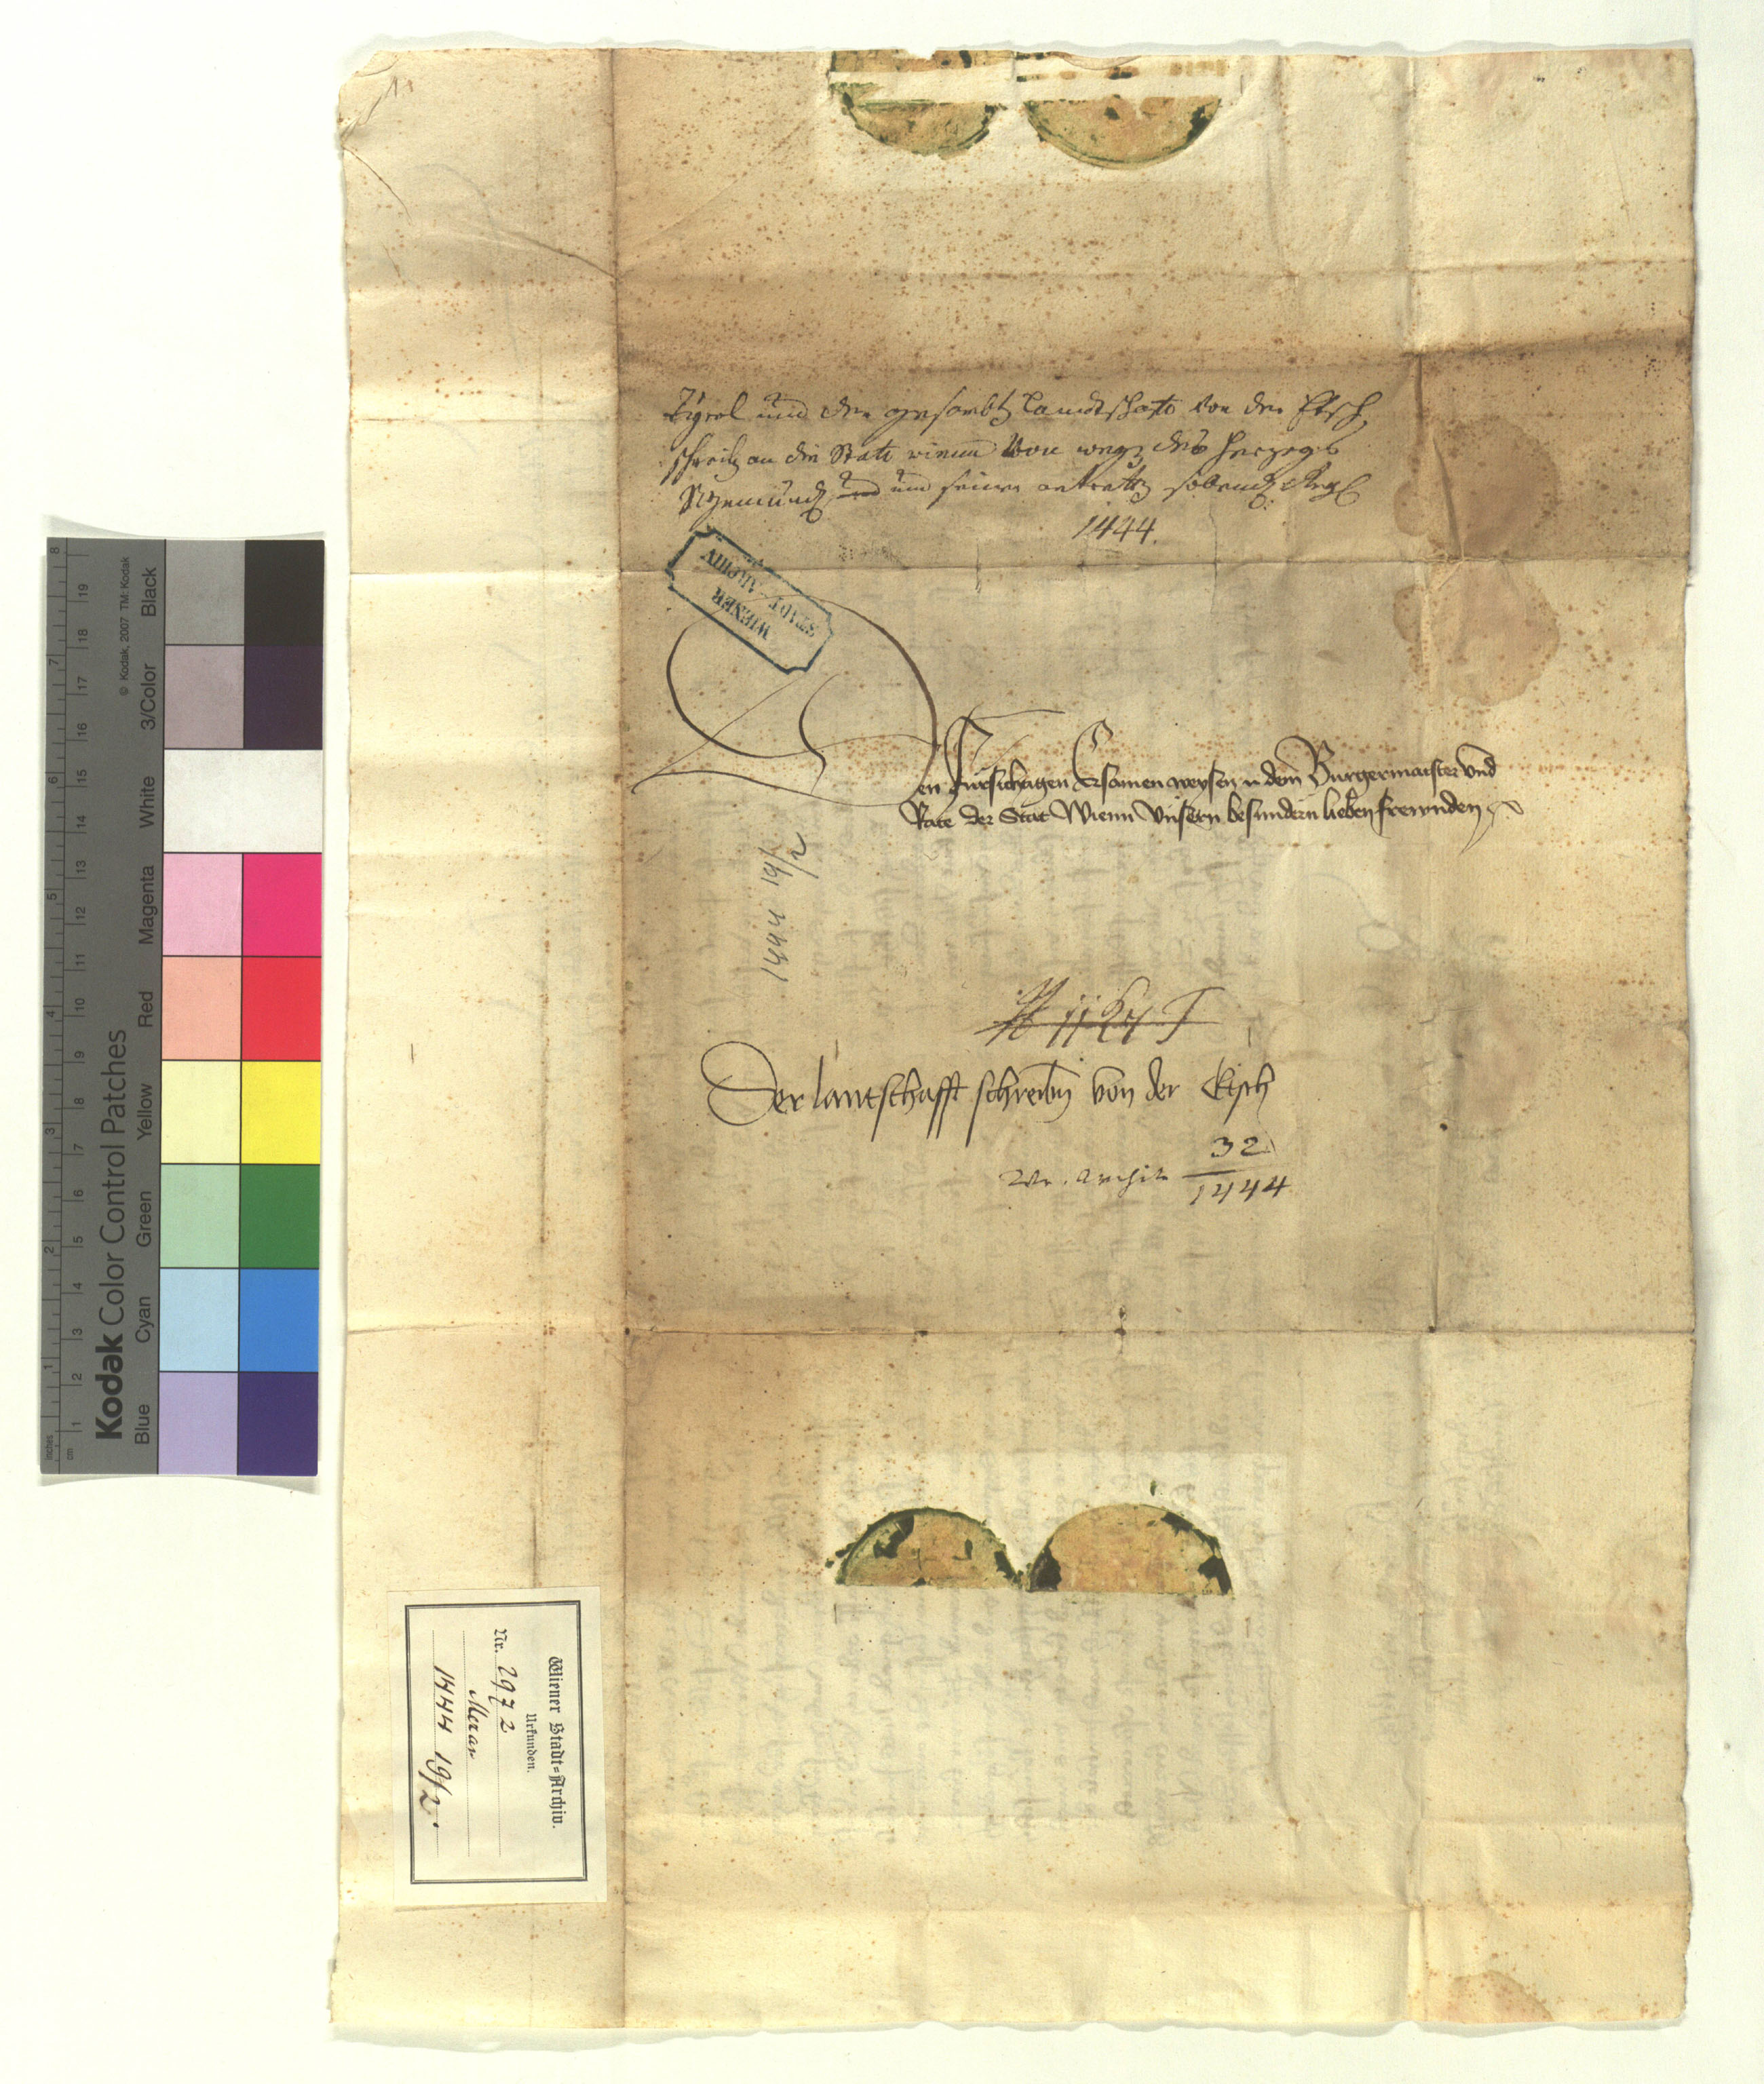 Tÿrol und der gesambten Landtschafft von der Etsch
schreiben an die Statt Wienn von wegen des Herzogs
Sigmunds und seiner
1444.
WIENER
STADT-ARCHIV
Den Fursichtigen Ersamen weysen n dem Burgermaister und
Rate der Stat Wienn Unsern besundern lieben frewnden
1444 19/2
Der lantschafft schreiben von der Etsch
Wr. Archiv 32
1444
Wiener Stadt=Archiv.
Urkunden.
Nr. 2972
Meran
1444 19/2.
© Kodak, 2007 TM: Kodak
Kodak Color Control Patches
Blue Cyan Green Yellow Red Magenta White 3/Color Black
inches 1 2 3 4 5 6 7 8
cm 1 2 3 4 5 6 7 8 9 10 11 12 13 14 15 16 17 18 19